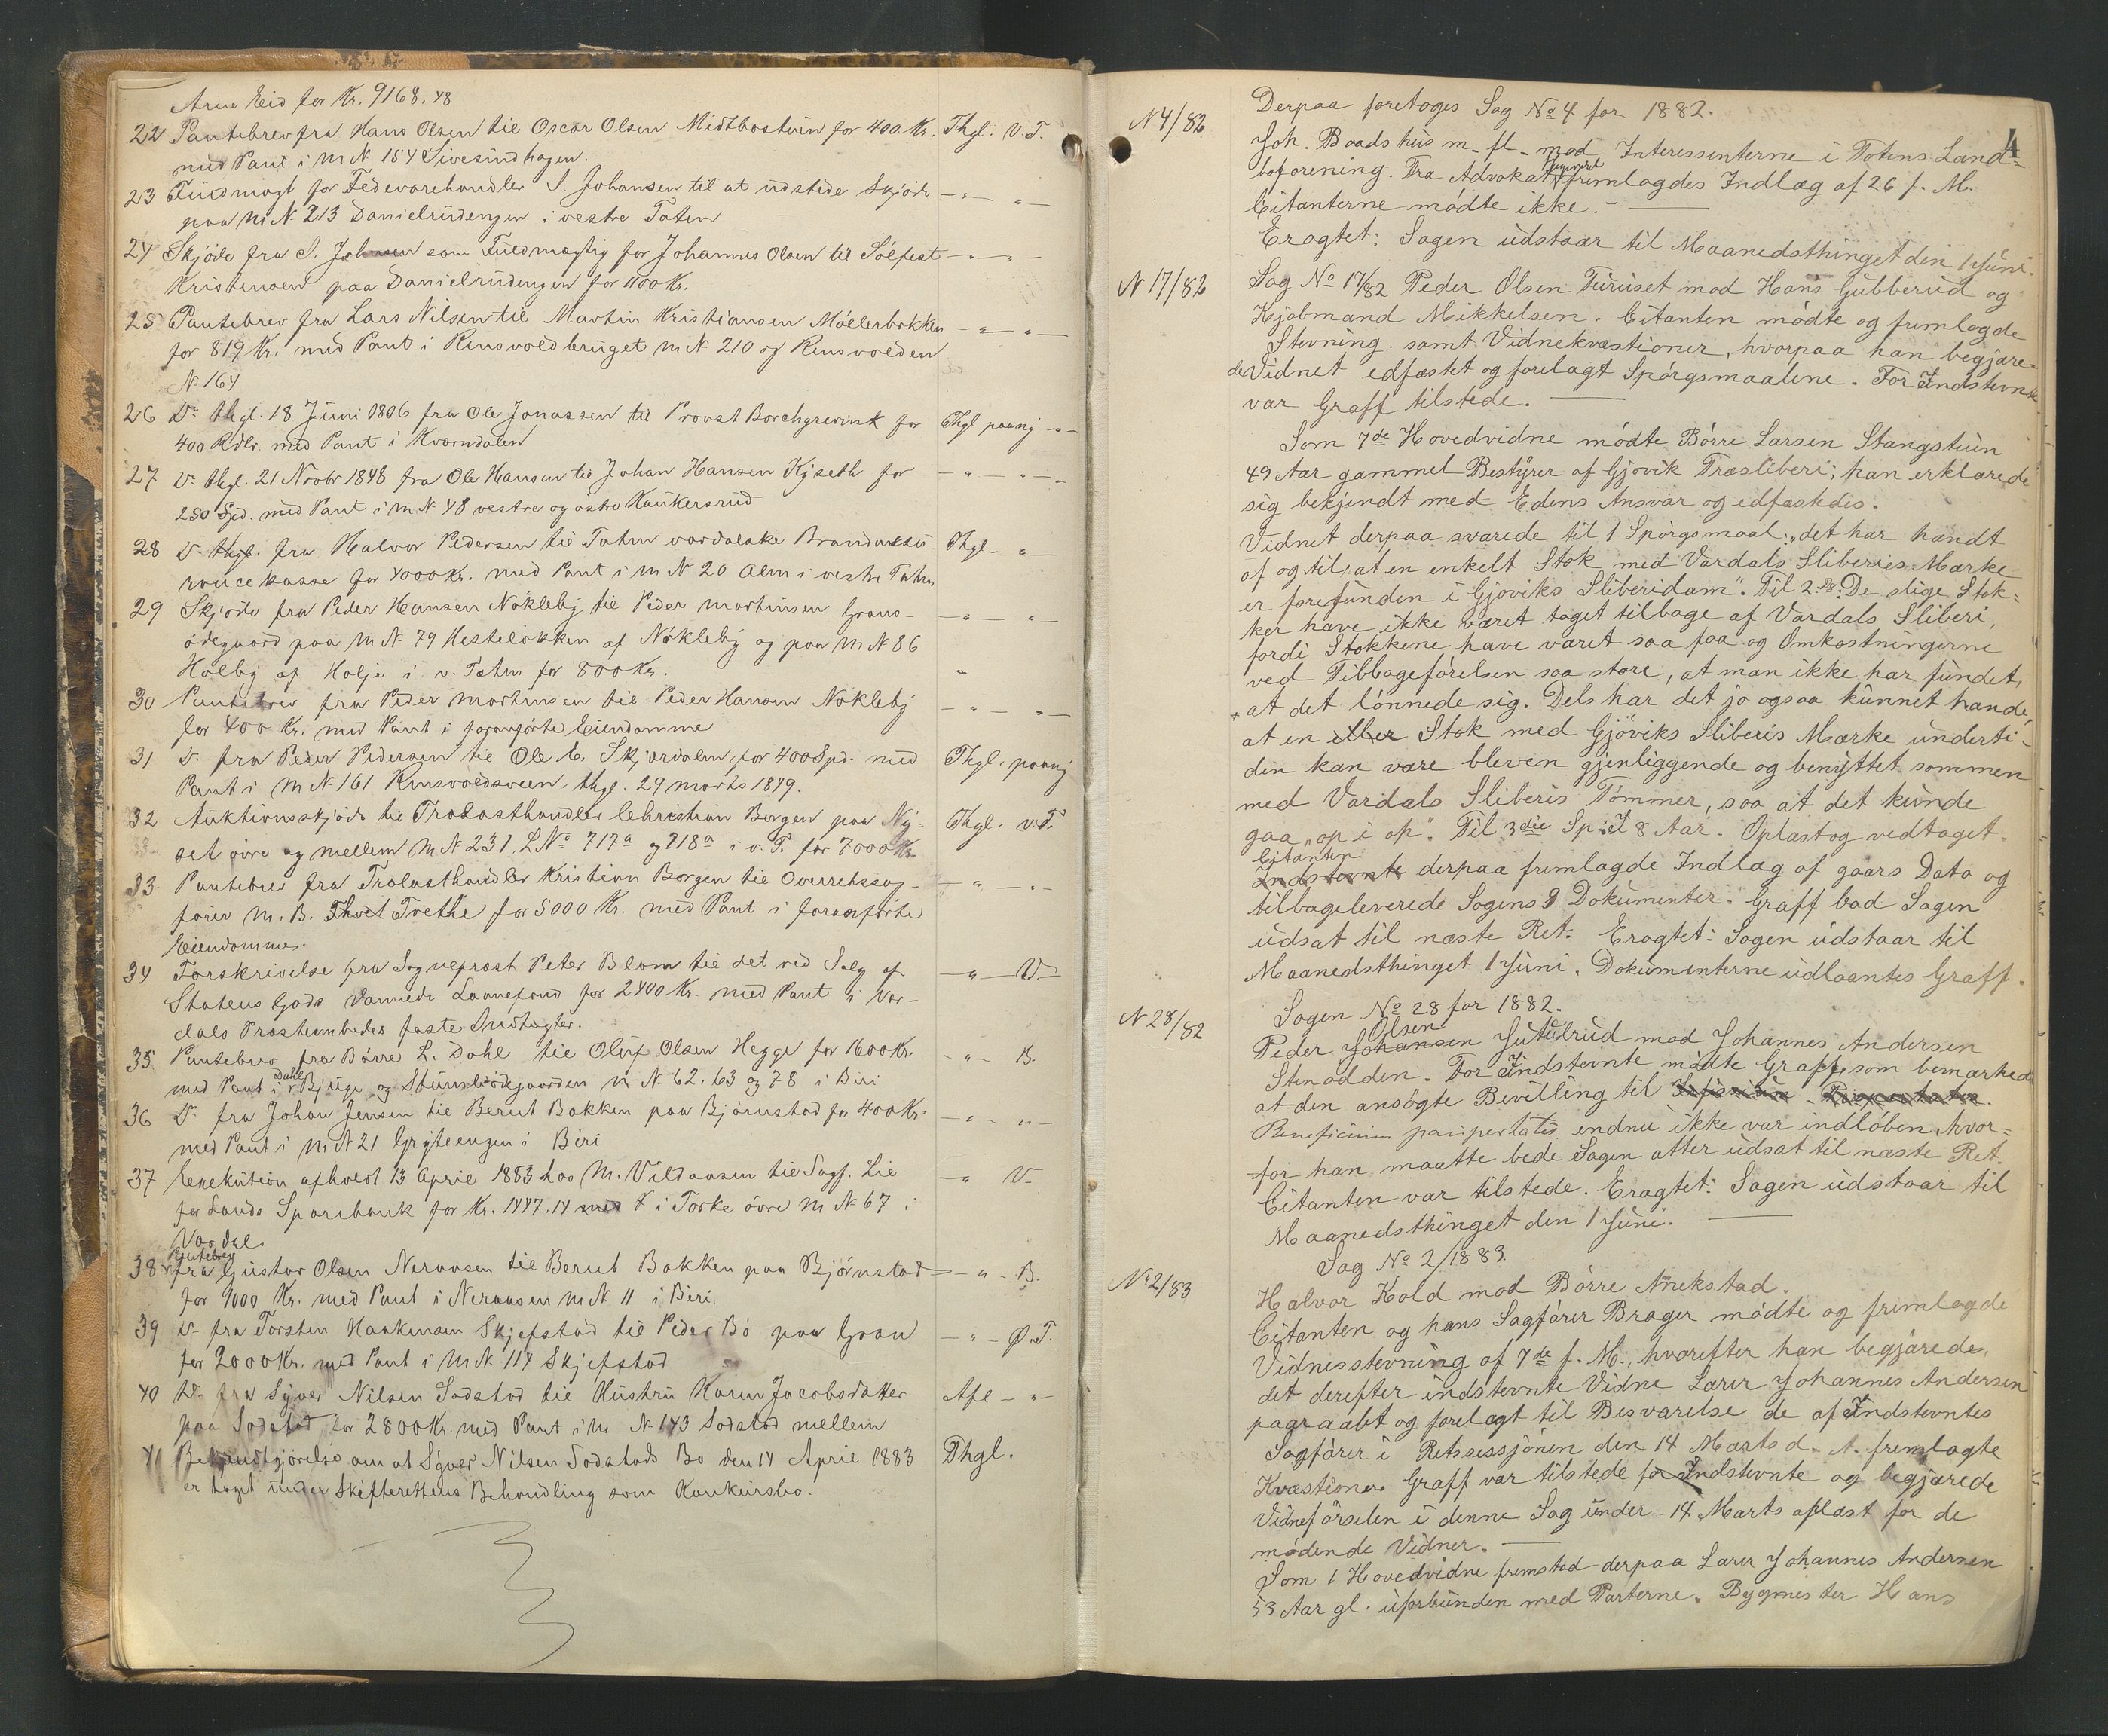 Arne Eid for Kr. 9168.48
22 Pantebrev fra Hans Olsen til Oscar Olsen Midtbøstuen for 400 Kr. Thgl. V.T.
med Pant i M N 154 Sivesindhagen.
23 Fuldmagt for Fedevarehandler S. Johansen til at udstede Skjøde — " — " —
paa M N 213 Danielrudengen i vestre Toten
24 Skjøde fra S. Johnsen som Fuldmægtig for Johannes Olsen til Sølfest — " — " —
Kristensen paa Danielrudengen for 1100 Kr.
25 Pantebrev fra Lars Nilsen til Martin Kristiansen Møllerbakken — " — " —
for 819 Kr. med Pant i Rensvoldbruget M N 210 og Rensvolden
N 164
26 Do thgl. 18 Juni 1806 fra Ole Jonassen til Provst Borchgrevink for Thgl paany — " —
400 Rdlr. med Pant i Kværndalen
27 Do thgl. 21 Novbr 1848 fra Ole Hansen til Johan Hansen Kyseth for — " — " —
250 Spd. med Pant i M N 48 vestre og østre Haukersrud
28 Do thgl. fra Halvor Pedersen til Toten Vardalske Brandassu- Thgl — " —
rancekasse for 4000 Kr. med Pant i M N 20 Alm i vestre Toten
29 Skjøde fra Peder Hansen Nøkleby til Peder Martinsen Grans- — " — " —
ødegaard paa M N 79 Hesteløkken af Nøkleby og paa M N 86
Holby af Holje i v. Toten for 800 Kr. "
30 Pantebrev fra Peder Martinsen til Peder Hansen Nøkleby — " — " —
for 400 Kr. med Pant i foranførte Eiendomme
31 Do fra Peder Pedersen til Ole E. Skjærdalen for 400 Spd. med Thgl. paany
Pant i M N 161 Rensvoldsveen. thgl. 29 Marts 1849.
32 Auktionsskjøde til Trælasthandler Christian Borgen paa Ny- Thgl. v.T.
set øvre og mellem M N 231. L No 717a og 718a i v. T. for 7000 Kr.
33 Pantebrev fra Trælasthandler Kristian Borgen til Overretssag- — " — " —
fører M. B. Thvet Tvethe for 5000 Kr. med Pant i foranførte
Eiendomme.
34 Forskrivelse fra Sogneprest Peter Blom til det ved Salg af — " — V —
Statens Gods dannede Laanefond for 2400 Kr. med Pant i Var-
dals Prestembedes faste Indtægter.
35 Pantebrev fra Børre L. Dahl til Oluf Olsen Hegge for 1600 Kr. — " — B.
med Pant i Dahl Bjuge og Stumlødegaarden M N 62. 63 og 78 i Biri
36 Do fra Johan Jensen til Bernt Bakken paa Bjørnstad for 400 Kr. — " — " —
med Pant i M N 21 Gryteengen i Biri
37 Exekution afholdt 13 April 1883 hos M. Vildaasen til Sagf. Lie — " V —
for Lands Sparebank for Kr. 1447.14 med i Torke øvre M N 67 i
Vardal
38 Pantebrev fra Gustav Olsen Neraasen til Bernt Bakken paa Bjørnstad — " — B.
for 1000 Kr. med Pant i Neraasen M N 11 i Biri.
39 Do fra Torsten Haakensen Skjefstad til Peder Bø paa Gran — " — Ø.T.
for 2000 Kr. med Pant i M N 114 Skjefstad
40 Do fra Syver Nilsen Sodstad til Hustru Karen Jacobsdatter Afl — " —
paa Sodstad for 2800 Kr. med Pant i M N 143 Sodstad mellem
41 Bekjendtgjørelse om at Syver Nilsen Sodstads Bo den 14 April 1883 Thgl.
er taget under Skifterettens Behandling som Konkursbo.
4
N 4/82 Derpaa foretoges Sag No 4 for 1882.
Joh. Baadshus m. fl. mod Interessenterne i Totens Land-
boforening. Fra Advokat fremlagdes Indlæg af 26 f. M.
Citanterne mødte ikke. —
Eragtet: Sagen udstaar til Maanedsthinget den 1 Juni.
N 17/82 Sag No 17/82 Peder Olsen Furuset mod Hans Gubberud og
Kjøbmand Mikkelsen. Citanten mødte og fremlagde
Stevning samt Vidnekvæstioner, hvorpaa han begjære-
de Vidnet edfæstet og forelagt Spørgsmaalene. For Indstevnte
var Graff tilstede. —
Som 7de Hovedvidne mødte Børre Larsen Stangstuen
49 Aar gammel Bestyrer af Gjøvik Træsliberi; han erklærede
sig bekjendt med Edens Ansvar og edfæstedes.
Vidnet derpaa svarede til 1 Spørgsmaal: „det har hændt
af og til, at en enkelt Stok med Vardals Sliberies Mærke
er forefunden i Gjøviks Sliberidam". Til 2 Sp: De slige Stok-
ker have ikke været taget tilbage af Vardals Sliberi,
fordi Stokkene have været saa faa og Omkostningerne
ved Tilbageførelsen saa store, at man ikke har fundet,
at det lønnede sig. Dels har det jo ogsaa kunnet hænde,
at en eller Stok med Gjøviks Sliberis Mærke underti-
den kan være bleven gjenliggende og benyttet sammen
med Vardals Sliberis Tømmer, saa at det kunde
gaa „op i op". Til 3die Sp: I 8 Aar. Oplæst og vedtaget.
Citanten
Indstevnte derpaa fremlagde Indlæg af gaars Dato og
tilbageleverede Sagens 9 Dokumenter. Graff bad Sagen
udsat til næste Ret. Eragtet: Sagen udstaar til
Maanedsthinget 1 Juni. Dokumenterne udlaantes Graff.
N 28/82 Sagen No 28 for 1882.
Olsen
Peder Johansen Jutulrud mod Johannes Andersen
Stenodden. For Indstevnte mødte Graff, som bemærkede
at den ansøgte Bevilling til
Beneficium paupertatis endnu ikke var indløben, hvor-
for han maatte bede Sagen atter udsat til næste Ret.
Citanten var tilstede. Eragtet: Sagen udstaar til
Maanedsthinget den 1 Juni. —
N 2/83 Sag No 2/1883.
Halvor Kold mod Børre Anekstad.
Citanten og hans Sagfører Brager mødte og fremlagde
Vidnesstevning af 7de f. M., hvorefter han begjærede,
det derefter indstevnte Vidne Lærer Johannes Andersen
paaraabt og forelagt til Besvarelse de af Indstevntes
Sagfører i Retssessjonen den 14 Marts d. A. fremlagte
Kvæstioner. Graff var tilstede for Indstevnte og begjærede
Vidneførselen i denne Sag under 14 Marts oplæst for de
mødende Vidner. —
Som 1 Hovedvidne fremstod derpaa Lærer Johannes Andersen
53 Aar gl. uforbunden med Parterne. Bygmester Hans